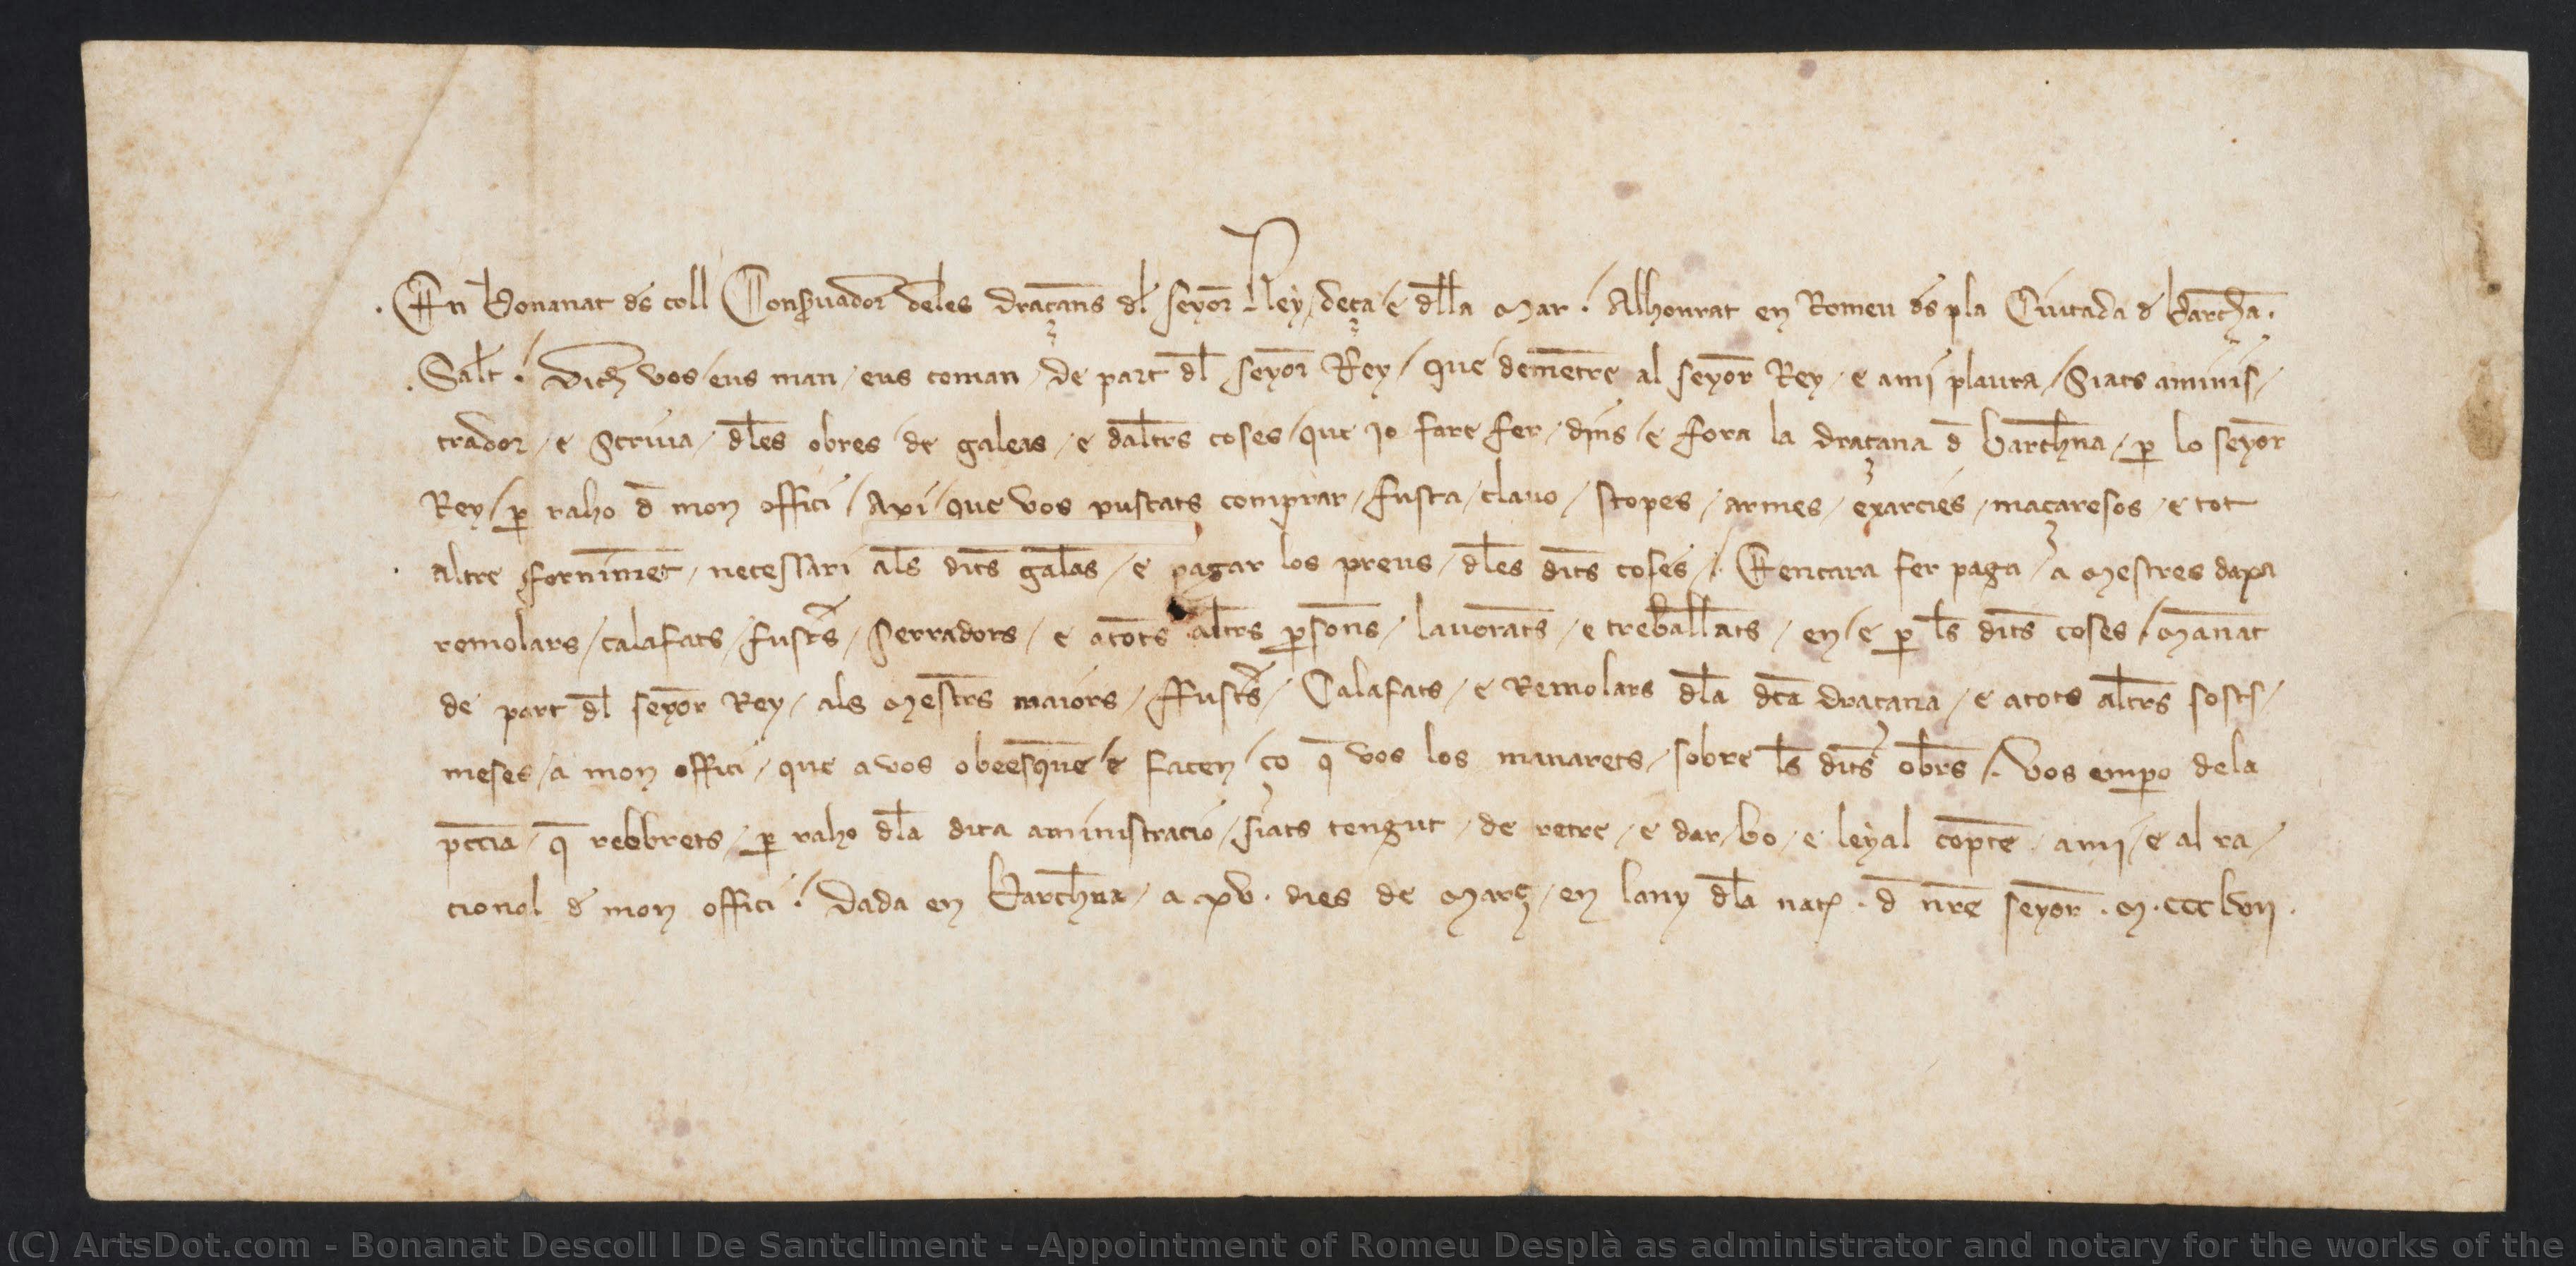 . En bonanat des coll Conseruador deles draçans del seyor Rey / deça / e della mar . / Alhonrat en Romeu des pla Ciutada de barchna .
. Salt . / Dich vos / eus man / eus coman / de part del seyor Rey / que dementre al seyor Rey / e ami plaura / Siats aminis /
trador / e Scriua / dles obres de galeas / e daltrs coses / que io fare fer / dins / e fora la draçana de barchna / per lo seyor
Rey / per raho de mon offici / Axi / que vos puscats comprar / fusta / clauo / stopes / armes / exarcies / maçaresos / e tot
altre forniment / necessari als dits galeas / e pagar los preus / dles dits coses / . E encara fer paga / a mestres daxa
remolars / calafats / fusters / serradors / e atots altrs persons / lauorants / e treballats / en / e per ls dits coses / . manant
de part del seyor Rey / als mestrs maiors / ffusters / Calafats / e Remolars dla dta draçana / e atots altrs sosts /
meses / a mon offici / que a vos obeesquen / e facen / ço que vos los manarets / sobre ls dits obrs / . vos empero dela
peccia / que rebbrets / per raho dla dita aministracio / siats tengut / de retre / e dar / bo / e leyal compte / ami / e al ra /
cionol de mon offici . / Dada en barchna / a xv . dies de març / en lany dla nat . de nre seyor . M . ccclvii .
(C) ArtsDot.com - Bonanat Descoll I De Santcliment - -Appointment of Romeu Desplà as administrator and notary for the works of the